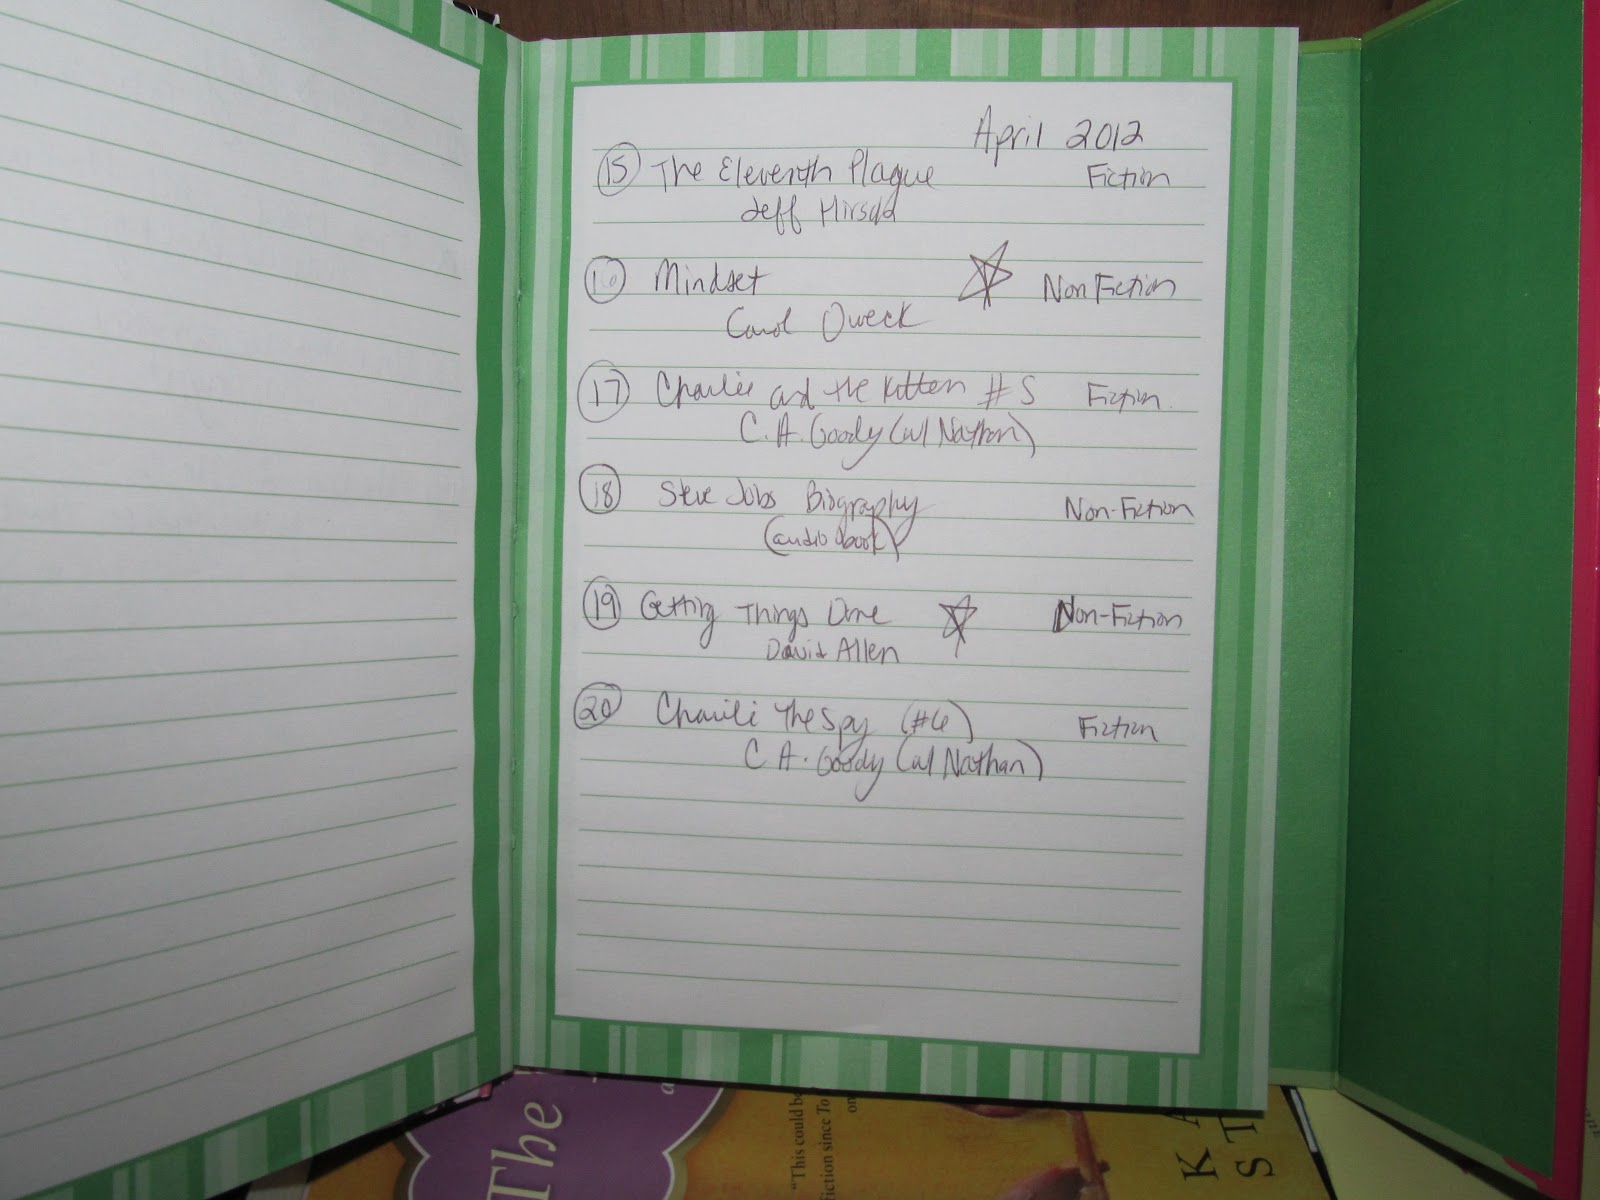 April 2012
15 The Eleventh Plague Fiction
Jeff Hirsch
16 Mindset NonFiction
Carol Dweck
17 Charlie and the Kitten #5 Fiction
C.A. Goody (w/ Nathan)
18 Steve Jobs Biography Non-Fiction
(audio book)
19 Getting Things Done Non-Fiction
David Allen
20 Charlie The Spy (#6) Fiction
C A. Goody (w/ Nathan)
The
"This could be
fiction since To
on
K A
S T